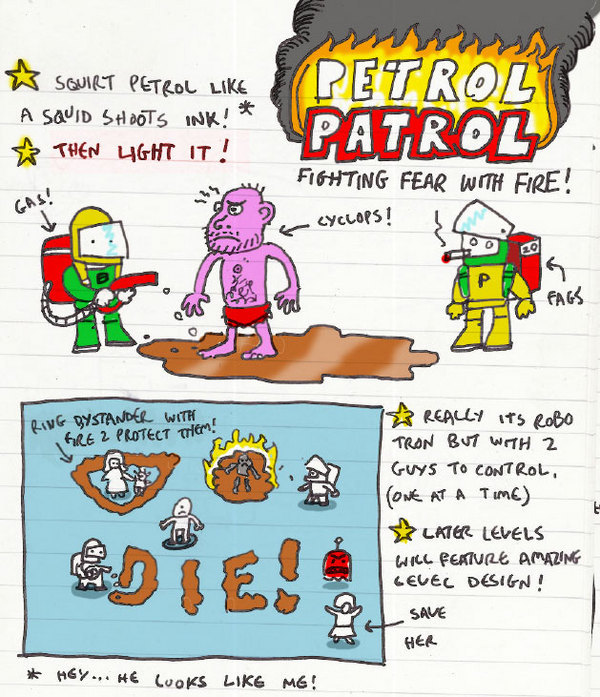 PETROL
PATROL
FIGHTING FEAR WITH FIRE!
★ SQUIRT PETROL LIKE
A SQUID SHOOTS INK! *
★ THEN LIGHT IT!
GAS!
CYCLOPS!
B
P
20
FAGS
RING BYSTANDER WITH
FIRE 2 PROTECT THEM!
DIE!
★ REALLY ITS ROBO
TRON BUT WITH 2
GUYS TO CONTROL.
(ONE AT A TIME)
★ LATER LEVELS
WILL FEATURE AMAZING
LEVEL DESIGN!
SAVE
HER
* HEY... HE LOOKS LIKE ME!